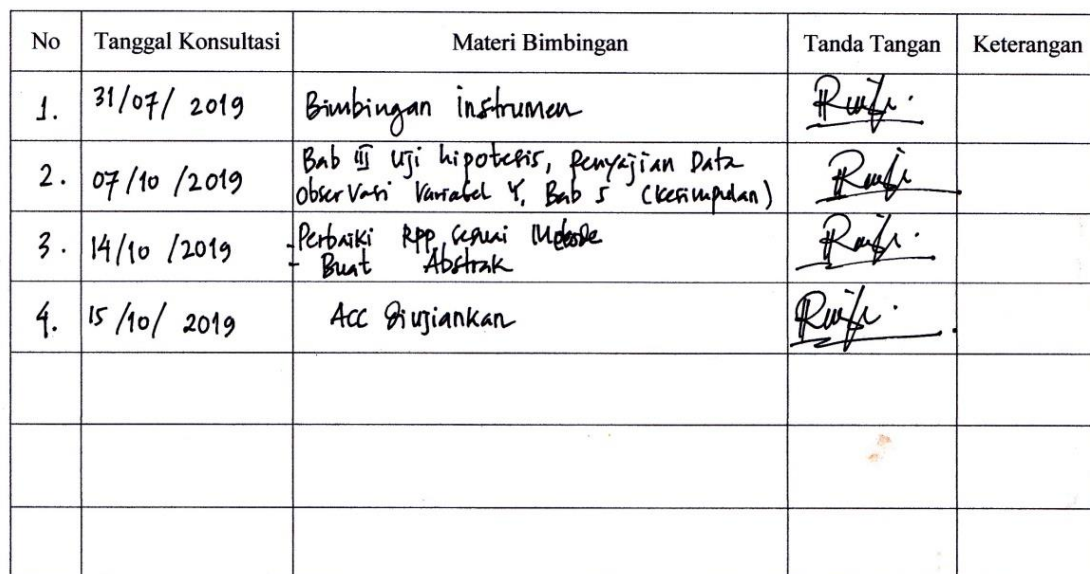 No Tanggal Konsultasi Materi Bimbingan Tanda Tangan Keterangan
1. 31/07/ 2019 Bimbingan instrumen
2. 07/10 /2019 Bab III Uji hipotesis, Penyajian Data
Observasi Variabel Y, Bab 5 (Kesimpulan)
3. 14/10 /2019 - Perbaiki RPP sesuai Metode
- Buat Abstrak
4. 15 /10/ 2019 Acc diujiankan